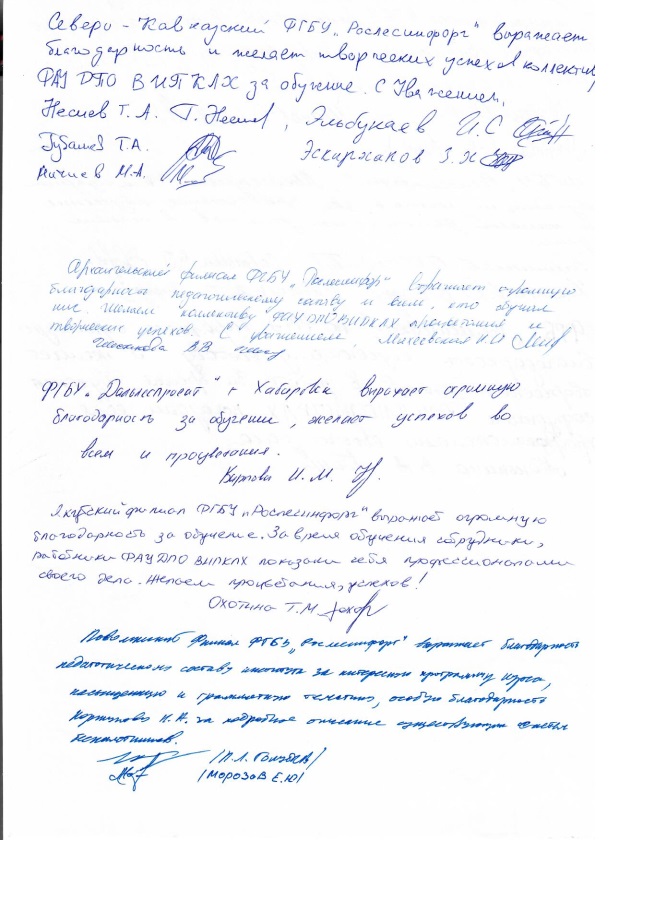 Северо - Кавказский ФГБУ „Рослесинфорг" выражает
благодарность и желает творческих успехов коллективу
ФАУ ДПО ВИПКЛХ за обучение. С Уважением,
Несиев Т. А. , Эльбукаев И.С
Губашев Т.А. Эскирханов З.Х
Мичиев М.А.
Архангельский филиал ФГБУ „Рослесинфорг" выражает огромную
благодарность педагогическому составу и всем, кто обучал
нас. Желаем коллективу ФАУ ДПО ВИПКЛХ процветания и
творческих успехов. С уважением, Макеевская
В.В.
ФГБУ „Дальлеспроект" г Хабаровск выражает огромную
благодарность за обучение, желают успехов во
всем и процветания.
Карпова И. М.
Якутский филиал ФГБУ „Рослесинфорг" выражает огромную
благодарность за обучение. За время обучения сотрудники,
работники ФАУ ДПО ВИПКЛХ показали себя профессионалами
своего дела. Желаем процветания, успехов!
Охотина Т.М
Поволжский филиал ФГБУ „Рослесинфорг" выражает благодарность
педагогическому составу института за интересную программу курса,
насыщенную и грамотную тематику, особую благодарность
Н. А. за подробное описание существующих
/П.Л. /
/Морозов Е.Ю/